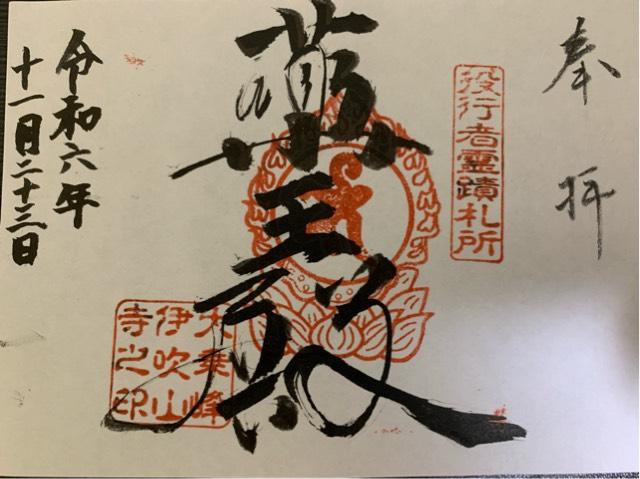 奉拝
役行者霊蹟札所
蔵王殿
大乗峰
伊吹山
寺之印
令和六年
十一月二十三日